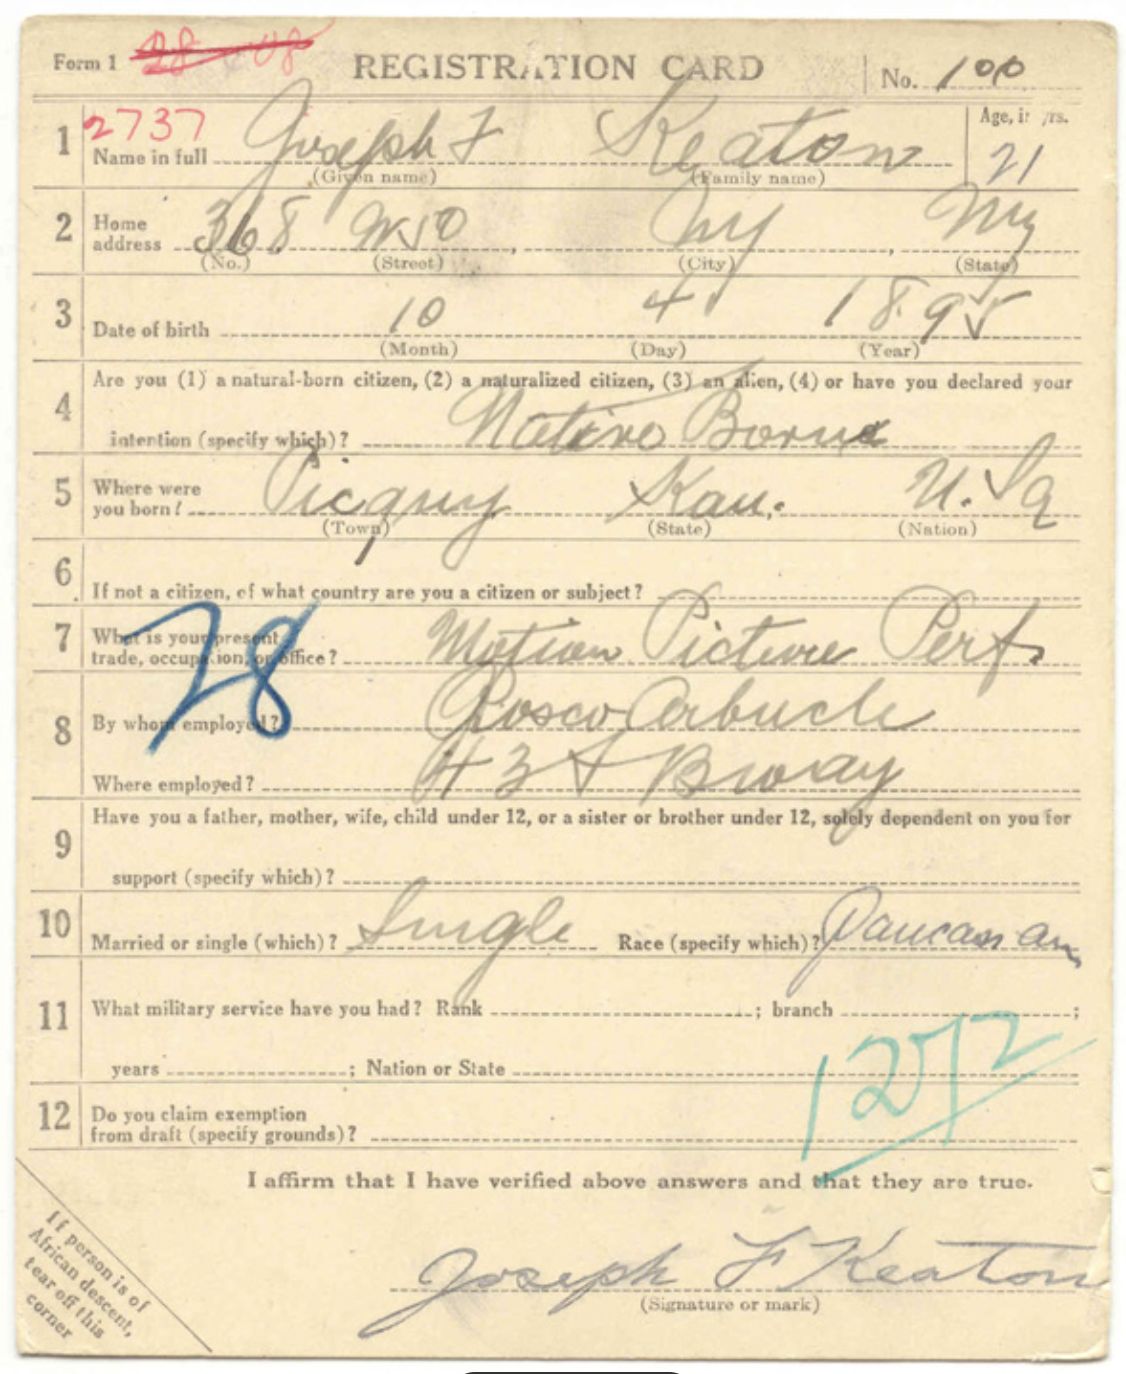 Form 1 REGISTRATION CARD No. 100
2737
1 Name in full Joseph F Keaton Age, in yrs. 21
(Given name) (Family name)
2 Home address 368 W 50 NY NY
(No.) (Street) (City) (State)
3 Date of birth 10 4 1895
(Month) (Day) (Year)
4 Are you (1) a natural-born citizen, (2) a naturalized citizen, (3) an alien, (4) or have you declared your
intention (specify which)? Native Born
5 Where were you born? Picquy Kan. U.Sa
(Town) (State) (Nation)
6 If not a citizen, of what country are you a citizen or subject?
7 What is your present trade, occupation, or office? Motion Picture Perf.
28
8 By whom employed? Rosco Arbucle
Where employed? 43 & Bway
9 Have you a father, mother, wife, child under 12, or a sister or brother under 12, solely dependent on you for
support (specify which)?
10 Married or single (which)? Single Race (specify which)?
11 What military service have you had? Rank ; branch ;
years ; Nation or State
12 Do you claim exemption from draft (specify grounds)?
I affirm that I have verified above answers and that they are true.
Joseph F Keaton
(Signature or mark)
If person is of
African descent,
tear off this
corner